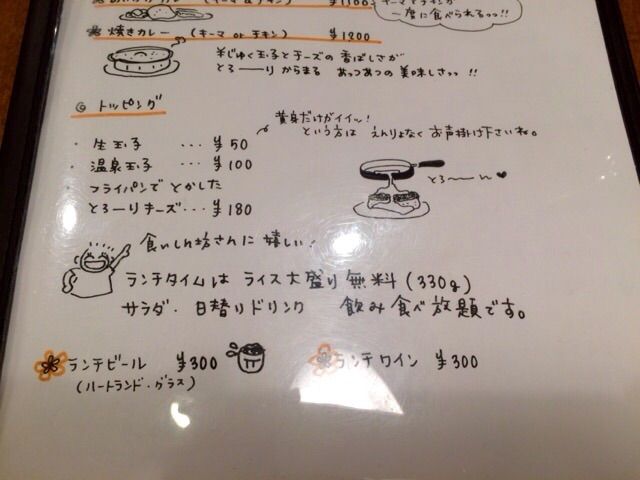 (キーマ & チキン) ¥1100
キーマとチキンが
一度に食べられるっっ!!
焼きカレー (キーマ or チキン) ¥1200
半じゅく玉子とチーズの香ばしさが
とろーーり からまる あっつあつの美味しさっっ !!
◎ トッピング
黄身だけがイイ〜!
という方は えんりょなく お声掛け下さいね。
・ 生玉子 ・・・ ¥50
・ 温泉玉子 ・・・ ¥100
・ フライパンで とかした
とろーりチーズ・・・ ¥180
とろ〜〜ん♥
食いしん坊さんに 嬉しい!
ランチタイムは ライス大盛り無料 (330g)
サラダ・日替りドリンク 飲み食べ放題です。
ランチビール ¥300
(ハートランド・グラス)
ランチワイン ¥300